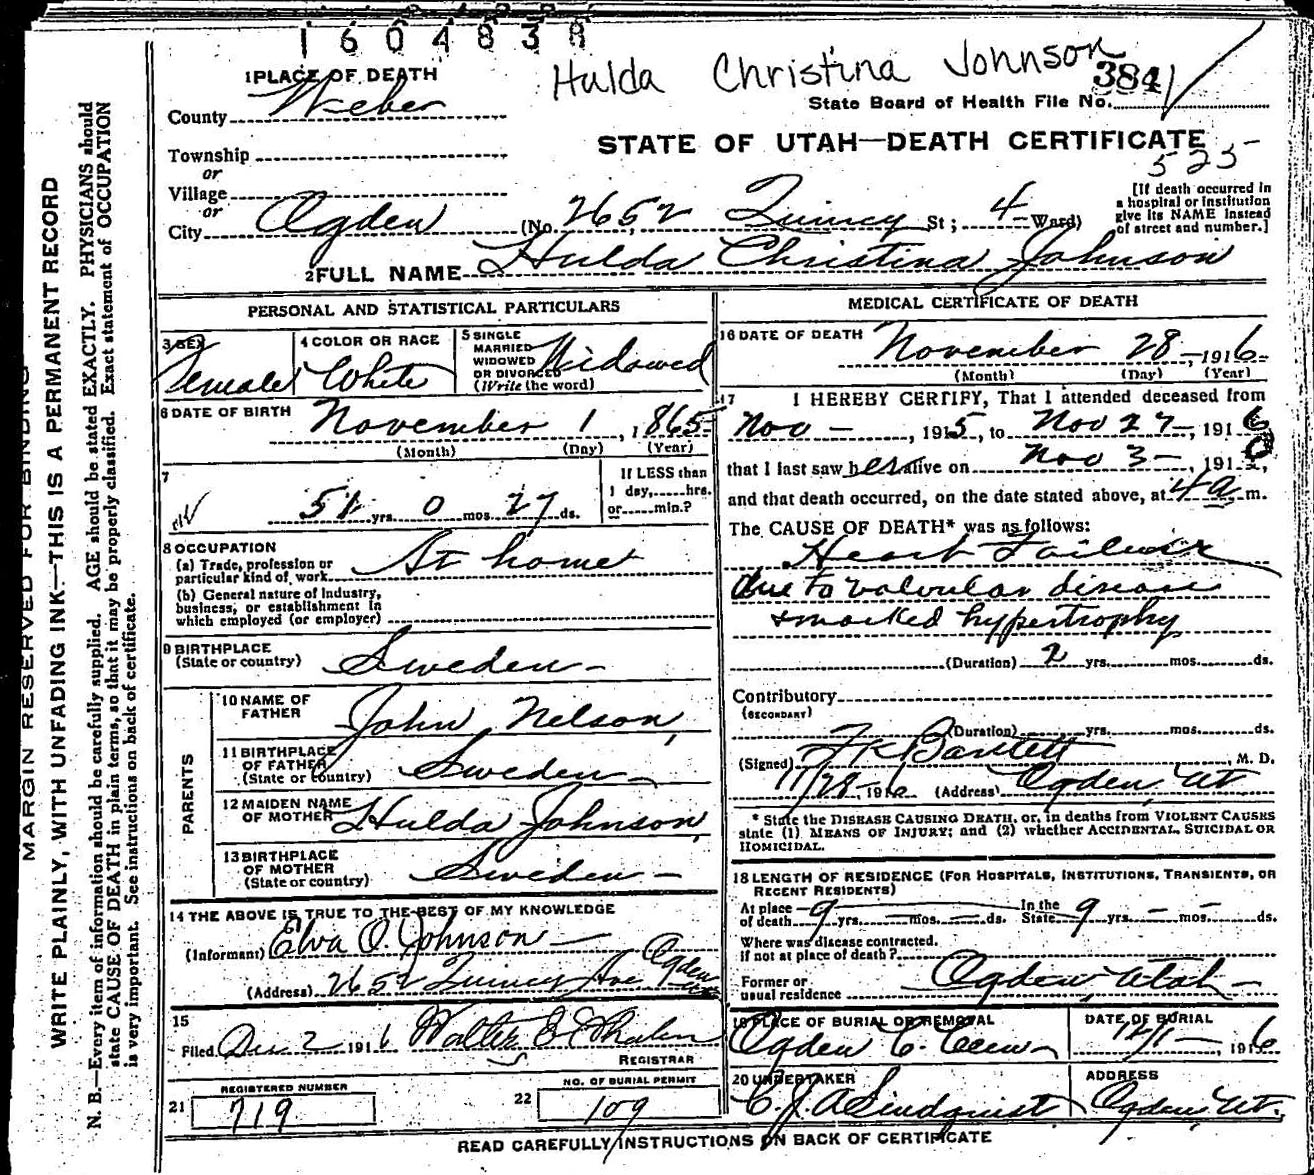 1604838
Hulda Christina Johnson
1 PLACE OF DEATH
County Weber
State Board of Health File No. 384
STATE OF UTAH—DEATH CERTIFICATE
525
Township
or
Village
or
City Ogden (No. 2652 Quincy St; 4 Ward)
[If death occurred in
a hospital or institution
give its NAME instead
of street and number.]
2 FULL NAME Hulda Christina Johnson
PERSONAL AND STATISTICAL PARTICULARS
3 SEX
Female
4 COLOR OR RACE
White
5 SINGLE
MARRIED
WIDOWED
OR DIVORCED
(Write the word)
Widowed
6 DATE OF BIRTH November 1, 1865
(Month) (Day) (Year)
7
51 yrs. 0 mos. 27 ds.
If LESS than
1 day, hrs.
or min.?
8 OCCUPATION
(a) Trade, profession or
particular kind of work At home
(b) General nature of Industry,
business, or establishment in
which employed (or employer)
9 BIRTHPLACE
(State or country) Sweden
PARENTS
10 NAME OF
FATHER John Nelson
11 BIRTHPLACE
OF FATHER
(State or country) Sweden
12 MAIDEN NAME
OF MOTHER Hulda Johnson
13 BIRTHPLACE
OF MOTHER
(State or country) Sweden
14 THE ABOVE IS TRUE TO THE BEST OF MY KNOWLEDGE
(Informant) Elva O. Johnson
(Address) 2652 Quincy Ave Ogden
15
Filed Dec 2 1916 Walter E Whalen
REGISTRAR
REGISTERED NUMBER
21 719
NO. OF BURIAL PERMIT
22 109
MEDICAL CERTIFICATE OF DEATH
16 DATE OF DEATH November 28 - 1916
(Month) (Day) (Year)
17 I HEREBY CERTIFY, That I attended deceased from
Nov - , 1915, to Nov 27 - , 1916
that I last saw her alive on Nov 3 - , 1916,
and that death occurred, on the date stated above, at 4 a m.
The CAUSE OF DEATH* was as follows:
Heart Failure
due to valvular disease
& marked hypertrophy
(Duration) 2 yrs. mos. ds.
Contributory
(SECONDARY)
(Duration) yrs. mos. ds.
(Signed) Bartlett, M. D.
11/28 - 1916 (Address) Ogden, Ut
* State the DISEASE CAUSING DEATH, or, in deaths from VIOLENT CAUSES
state (1) MEANS OF INJURY; and (2) whether ACCIDENTAL, SUICIDAL OR
HOMICIDAL.
18 LENGTH OF RESIDENCE (FOR HOSPITALS, INSTITUTIONS, TRANSIENTS, OR
RECENT RESIDENTS)
At place of death 9 yrs. mos. ds. In the State 9 yrs. - mos. - ds.
Where was disease contracted,
if not at place of death?
Former or
usual residence Ogden, Utah
19 PLACE OF BURIAL OR REMOVAL
Ogden C. Cem
DATE OF BURIAL
12/1 - , 1916
20 UNDERTAKER
C. J. A Lindquist
ADDRESS
Ogden, Ut.
READ CAREFULLY INSTRUCTIONS ON BACK OF CERTIFICATE
MARGIN RESERVED FOR BINDING
WRITE PLAINLY, WITH UNFADING INK—THIS IS A PERMANENT RECORD
N. B.—Every item of information should be carefully supplied. AGE should be stated EXACTLY. PHYSICIANS should
state CAUSE OF DEATH in plain terms, so that it may be properly classified. Exact statement of OCCUPATION
is very important. See instructions on back of certificate.